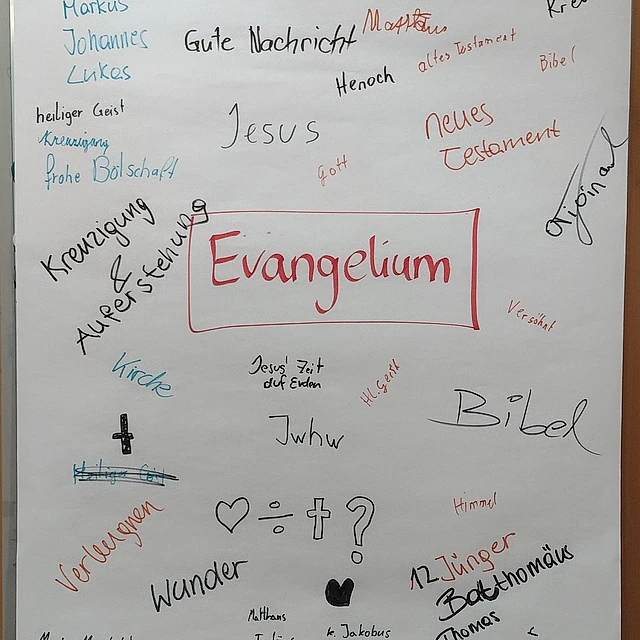 Markus
Johannes
Lukas
Gute Nachricht
Henoch
altes Testament
Bibel
heiliger Geist
Kreuzigung
frohe Botschaft
Jesus
Gott
neues
Testament
Kreuzigung
&
Auferstehung
Evangelium
Versöhnt
Kirche
Jesus' Zeit
auf Erden
Hl Geist
Jwhw
Bibel
Heiliger Geist
♡ ÷ ✝ ?
Himmel
Verleugnen
Wunder
12 Jünger
Batthomäus
Thomas
Matthäus
k. Jakobus